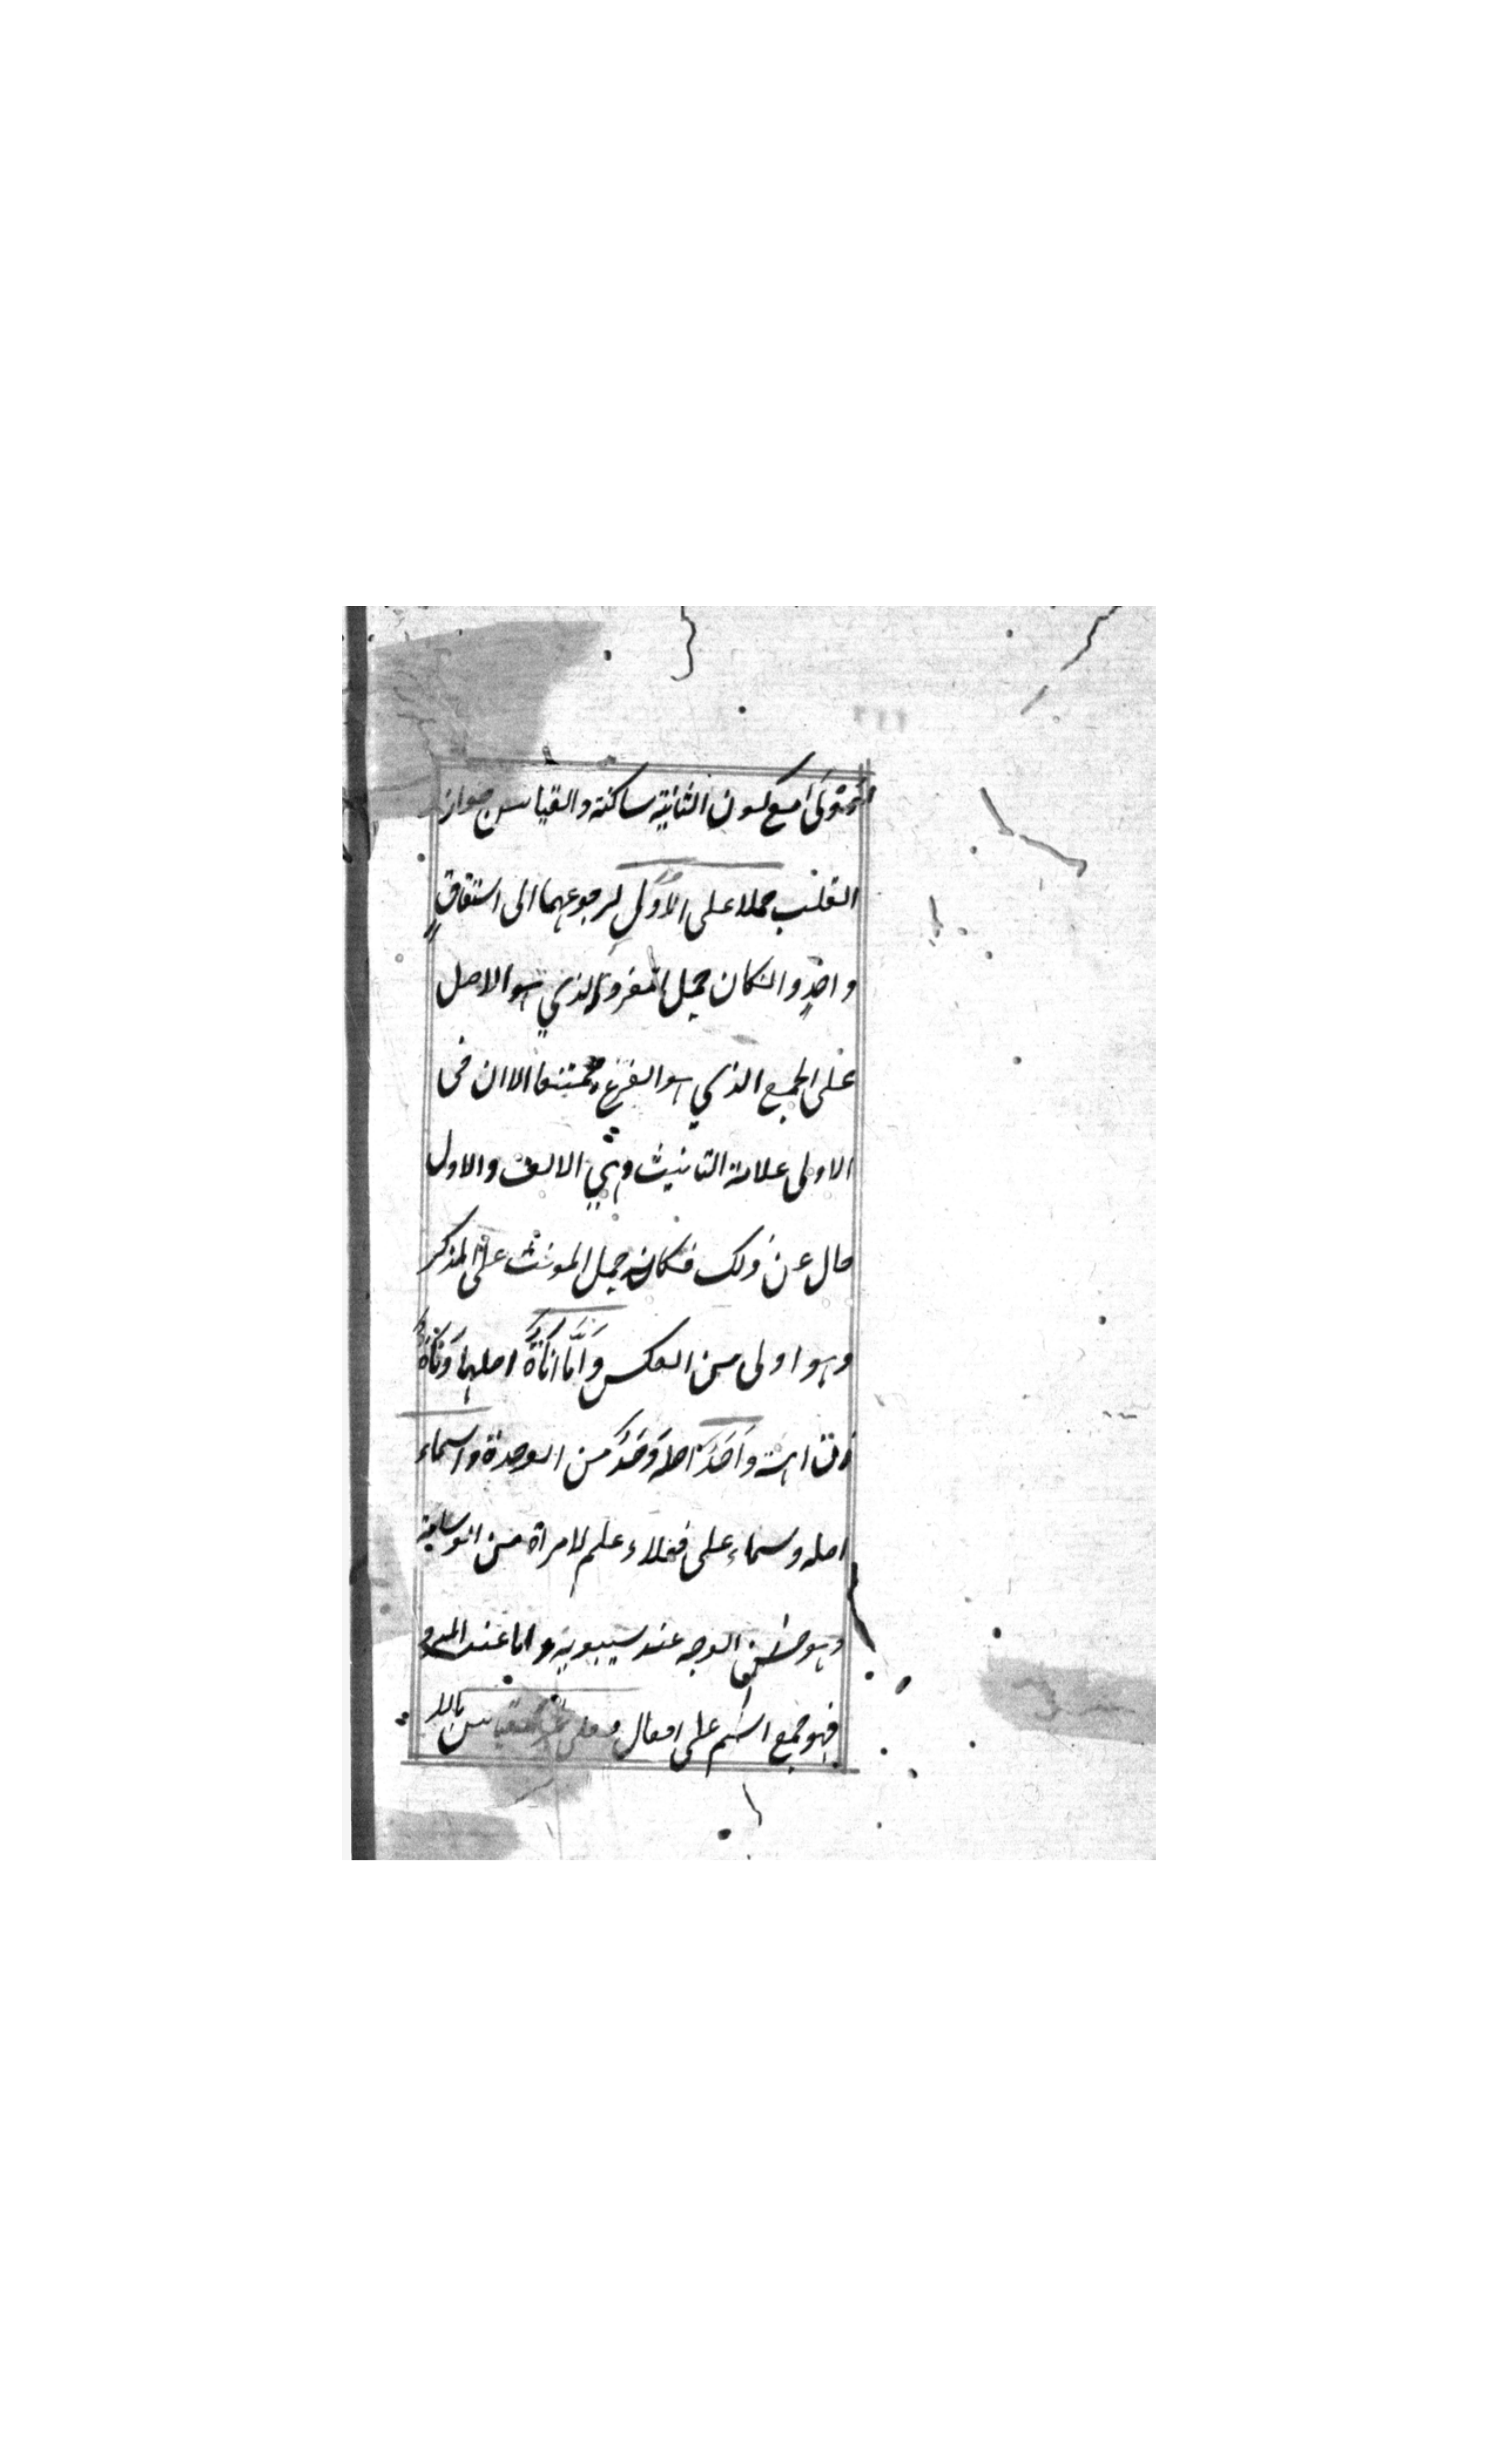 مع كون الثانية ساكنة والقياس جواز
القلب حملا على الاول لرجوعهما الى استقاق
واحد والكان حمل المفرد الذي هو الاصل
على الجمع الذي هو الفرع ممتنعا الا ان فى
الاولى علامة التانيث وهي الالف والاول
خال عن ذلك فكانه حمل المونث على المذكر
وهو اولى من العكس وَاَمَّا اَنَاةٌ اصلها وَنَاةٌ
وَاَحَدٌ اصله وَحَدٌ من الوحدة واسماء
اصله وسماء على فعلاء علم لامراة من الوسامة
وهو حسن الوجه عند سيبويه واما عند المبرد
فهو جمع اسم على افعال وعلى القياس